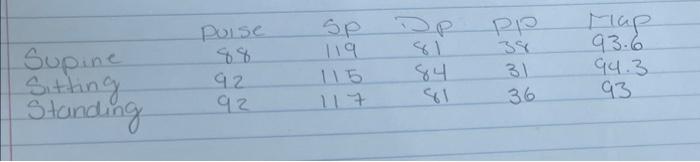 Pulse Sp Dp PP Map
Supine 88 119 81 38 93.6
Sitting 92 115 84 31 94.3
Standing 92 117 81 36 93